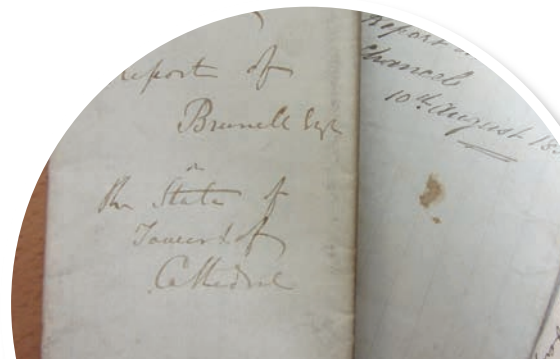 Report of
Brunell Esqr
on
the State of
Tower of
Cathedral
Report
Chancel
10th August